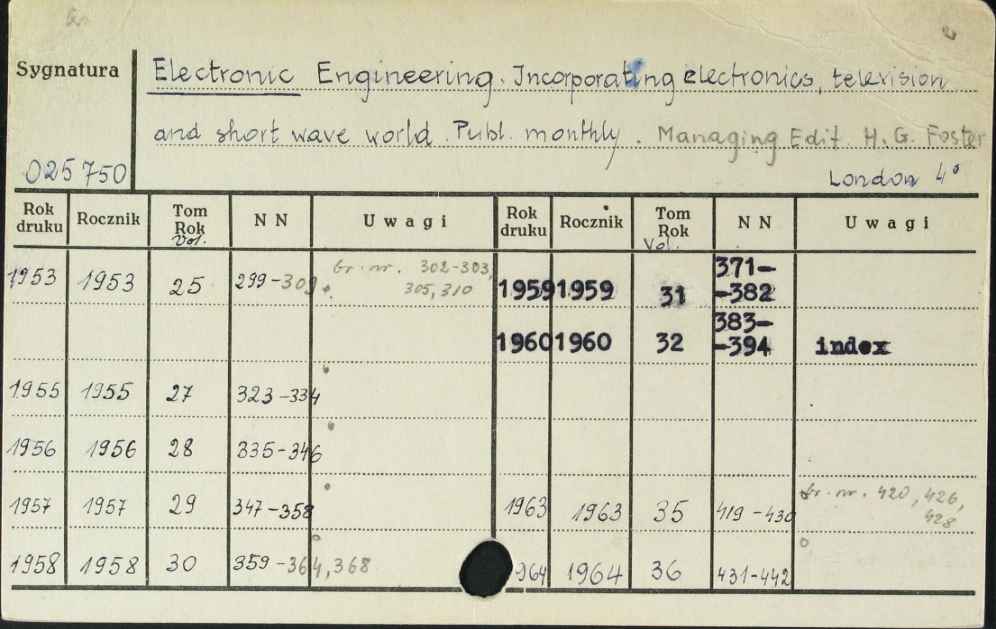 Sygnatura
Electronic Engineering. Incorporating electronics, television
and short wave world. Publ. monthly. Managing Edit. H. G. Foster
025750
London 4°
Rok druku Rocznik Tom Rok Vol. NN Uwagi Rok druku Rocznik Tom Rok Vol. NN Uwagi
1953 1953 25 299-309 br. nr. 302-303, 305, 310 1959 1959 31 371--382
1960 1960 32 383--394 index
1955 1955 27 323-334
1956 1956 28 335-346
1957 1957 29 347-358 1963 1963 35 419-430 br. nr. 420, 426, 428
1958 1958 30 359-364, 368 1964 1964 36 431-442